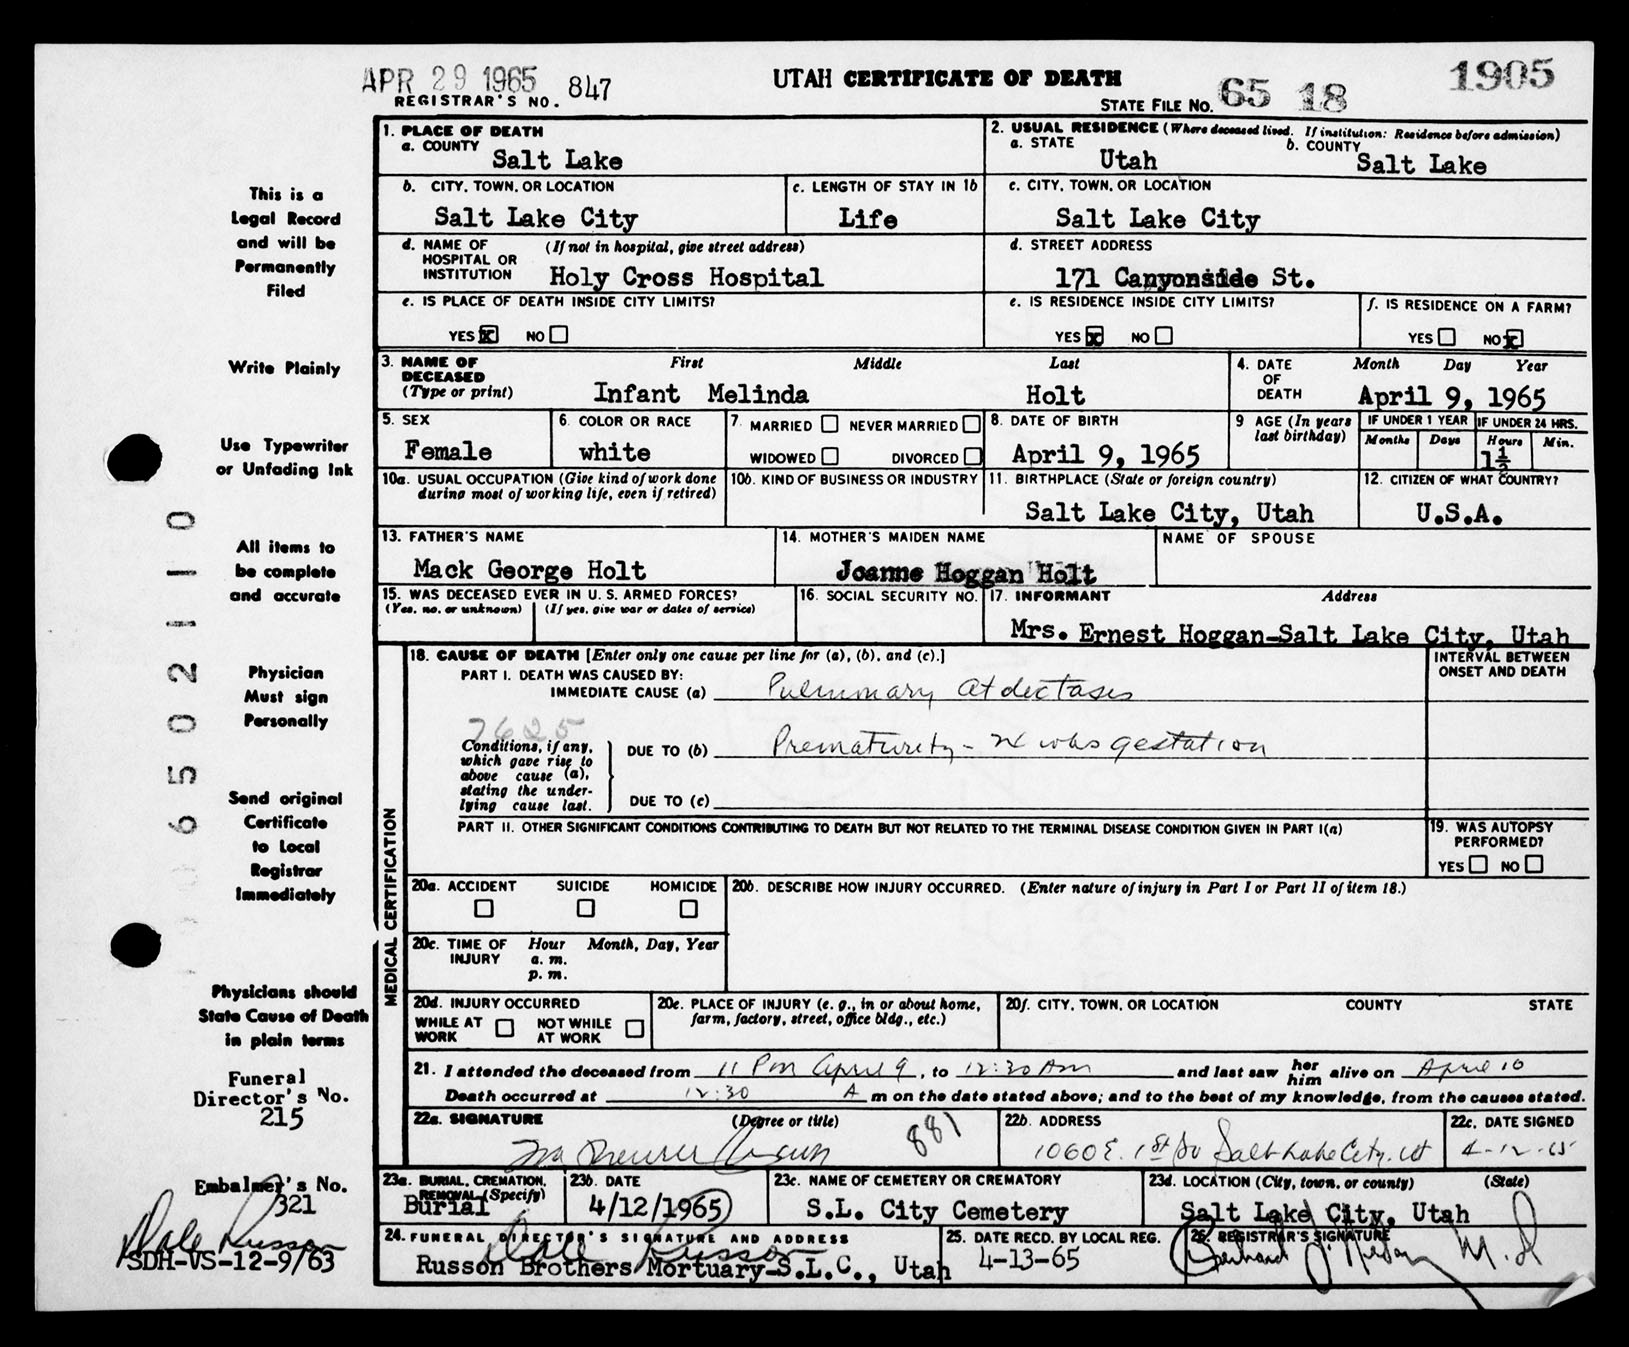 APR 29 1965 847
REGISTRAR'S NO.
UTAH CERTIFICATE OF DEATH
1905
STATE FILE NO. 65 18
1. PLACE OF DEATH
a. COUNTY
Salt Lake
2. USUAL RESIDENCE (Where deceased lived. If institution: Residence before admission)
a. STATE
Utah
b. COUNTY
Salt Lake
b. CITY, TOWN, OR LOCATION
Salt Lake City
c. LENGTH OF STAY IN 1b
Life
c. CITY, TOWN, OR LOCATION
Salt Lake City
d. NAME OF HOSPITAL OR INSTITUTION (If not in hospital, give street address)
Holy Cross Hospital
d. STREET ADDRESS
171 Canyonside St.
e. IS PLACE OF DEATH INSIDE CITY LIMITS?
YES X NO
e. IS RESIDENCE INSIDE CITY LIMITS?
YES X NO
f. IS RESIDENCE ON A FARM?
YES NO X
3. NAME OF DECEASED (Type or print)
First Middle Last
Infant Melinda Holt
4. DATE OF DEATH
Month Day Year
April 9, 1965
5. SEX
Female
6. COLOR OR RACE
white
7. MARRIED NEVER MARRIED
WIDOWED DIVORCED
8. DATE OF BIRTH
April 9, 1965
9 AGE (In years last birthday)
IF UNDER 1 YEAR
Months Days
IF UNDER 24 HRS.
Hours Min.
1½
10a. USUAL OCCUPATION (Give kind of work done during most of working life, even if retired)
10b. KIND OF BUSINESS OR INDUSTRY
11. BIRTHPLACE (State or foreign country)
Salt Lake City, Utah
12. CITIZEN OF WHAT COUNTRY?
U.S.A.
13. FATHER'S NAME
Mack George Holt
14. MOTHER'S MAIDEN NAME
Joanne Hoggan Holt
NAME OF SPOUSE
15. WAS DECEASED EVER IN U. S. ARMED FORCES?
(Yes, no, or unknown) (If yes, give war or dates of service)
16. SOCIAL SECURITY NO.
17. INFORMANT Address
Mrs. Ernest Hoggan-Salt Lake City, Utah
18. CAUSE OF DEATH [Enter only one cause per line for (a), (b), and (c).]
INTERVAL BETWEEN ONSET AND DEATH
PART I. DEATH WAS CAUSED BY:
IMMEDIATE CAUSE (a) Pulmonary Atelectasis
7625
Conditions, if any, which gave rise to above cause (a), stating the underlying cause last.
DUE TO (b) Prematurity - wks gestation
DUE TO (c)
PART II. OTHER SIGNIFICANT CONDITIONS CONTRIBUTING TO DEATH BUT NOT RELATED TO THE TERMINAL DISEASE CONDITION GIVEN IN PART I(a)
19. WAS AUTOPSY PERFORMED?
YES NO
MEDICAL CERTIFICATION
20a. ACCIDENT SUICIDE HOMICIDE
20b. DESCRIBE HOW INJURY OCCURRED. (Enter nature of injury in Part I or Part II of item 18.)
20c. TIME OF INJURY
Hour Month, Day, Year
a. m.
p. m.
20d. INJURY OCCURRED
WHILE AT WORK NOT WHILE AT WORK
20e. PLACE OF INJURY (e. g., in or about home, farm, factory, street, office bldg., etc.)
20f. CITY, TOWN, OR LOCATION COUNTY STATE
21. I attended the deceased from 11 Pm April 9, to 12:30 Am and last saw her him alive on April 10
Death occurred at 12:30 A m on the date stated above; and to the best of my knowledge, from the causes stated.
22a. SIGNATURE (Degree or title)
881
22b. ADDRESS
1060 E. 1st So Salt Lake City, Ut
22c. DATE SIGNED
4-12-65
23a. BURIAL, CREMATION, REMOVAL (Specify)
Burial
23b. DATE
4/12/1965
23c. NAME OF CEMETERY OR CREMATORY
S.L. City Cemetery
23d. LOCATION (City, town, or county) (State)
Salt Lake City, Utah
24. FUNERAL DIRECTOR'S SIGNATURE AND ADDRESS
Dale Russon
Russon Brothers Mortuary-S.L.C., Utah
25. DATE RECD. BY LOCAL REG.
4-13-65
26. REGISTRAR'S SIGNATURE
M. D
This is a
Legal Record
and will be
Permanently
Filed
Write Plainly
Use Typewriter
or Unfading Ink
All items to
be complete
and accurate
Physician
Must sign
Personally
Send original
Certificate
to Local
Registrar
Immediately
Physicians should
State Cause of Death
in plain terms
Funeral
Director's No.
215
Embalmer's No.
321
Dale Russon
SDH-VS-12-9/63
6502110